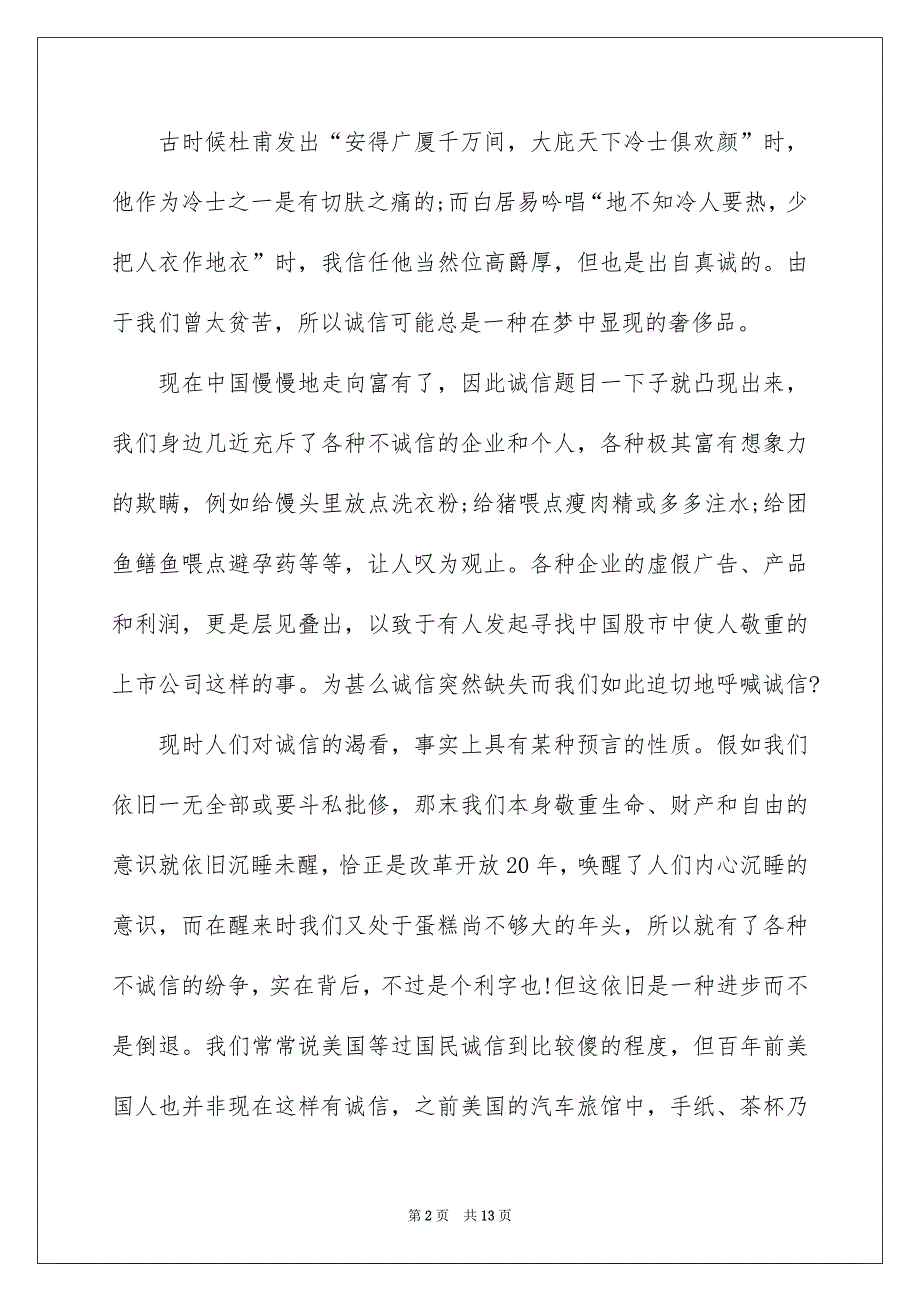 古时候杜甫发出“安得广厦千万间，大庇天下冷士俱欢颜”时，
他作为冷士之一是有切肤之痛的;而白居易吟唱“地不知冷人要热，少
把人衣作地衣”时，我信任他当然位高爵厚，但也是出自真诚的。由
于我们曾太贫苦，所以诚信可能总是一种在梦中显现的奢侈品。
现在中国慢慢地走向富有了，因此诚信题目一下子就凸现出来，
我们身边几近充斥了各种不诚信的企业和个人，各种极其富有想象力
的欺瞒，例如给馒头里放点洗衣粉;给猪喂点瘦肉精或多多注水;给团
鱼鳝鱼喂点避孕药等等，让人叹为观止。各种企业的虚假广告、产品
和利润，更是层见叠出，以致于有人发起寻找中国股市中使人敬重的
上市公司这样的事。为甚么诚信突然缺失而我们如此迫切地呼喊诚信?
现时人们对诚信的渴看，事实上具有某种预言的性质。假如我们
依旧一无全部或要斗私批修，那末我们本身敬重生命、财产和自由的
意识就依旧沉睡未醒，恰正是改革开放 20 年，唤醒了人们内心沉睡的
意识，而在醒来时我们又处于蛋糕尚不够大的年头，所以就有了各种
不诚信的纷争，实在背后，不过是个利字也!但这依旧是一种进步而不
是倒退。我们常常说美国等过国民诚信到比较傻的程度，但百年前美
国人也并非现在这样有诚信，之前美国的汽车旅馆中，手纸、茶杯乃
第 2 页 共 13 页